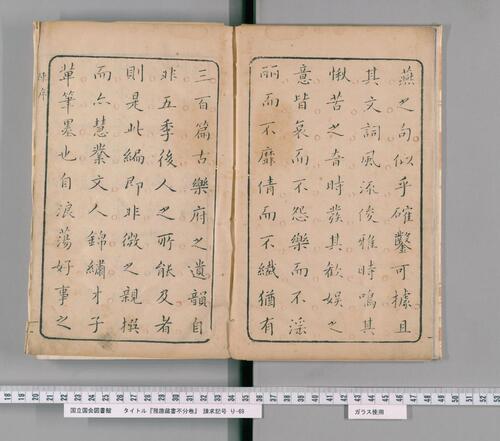 燕之句似乎確鑿可據且
其文詞風流俊雅時鳴其
愀苦之奇時發其歡娛之
意皆哀而不怨樂而不淫
丽而不靡倩而不纖猶有
三百篇古樂府之遺韻自
非五季後人之所能及者
則是此編即非微之親撰
而亦慧業文人錦繡才子
輩筆墨也自浪蕩好事之
陳序
国立国会図書館 タイトル『雅趣蔵書不分巻』 請求記号 り-69
ガラス使用